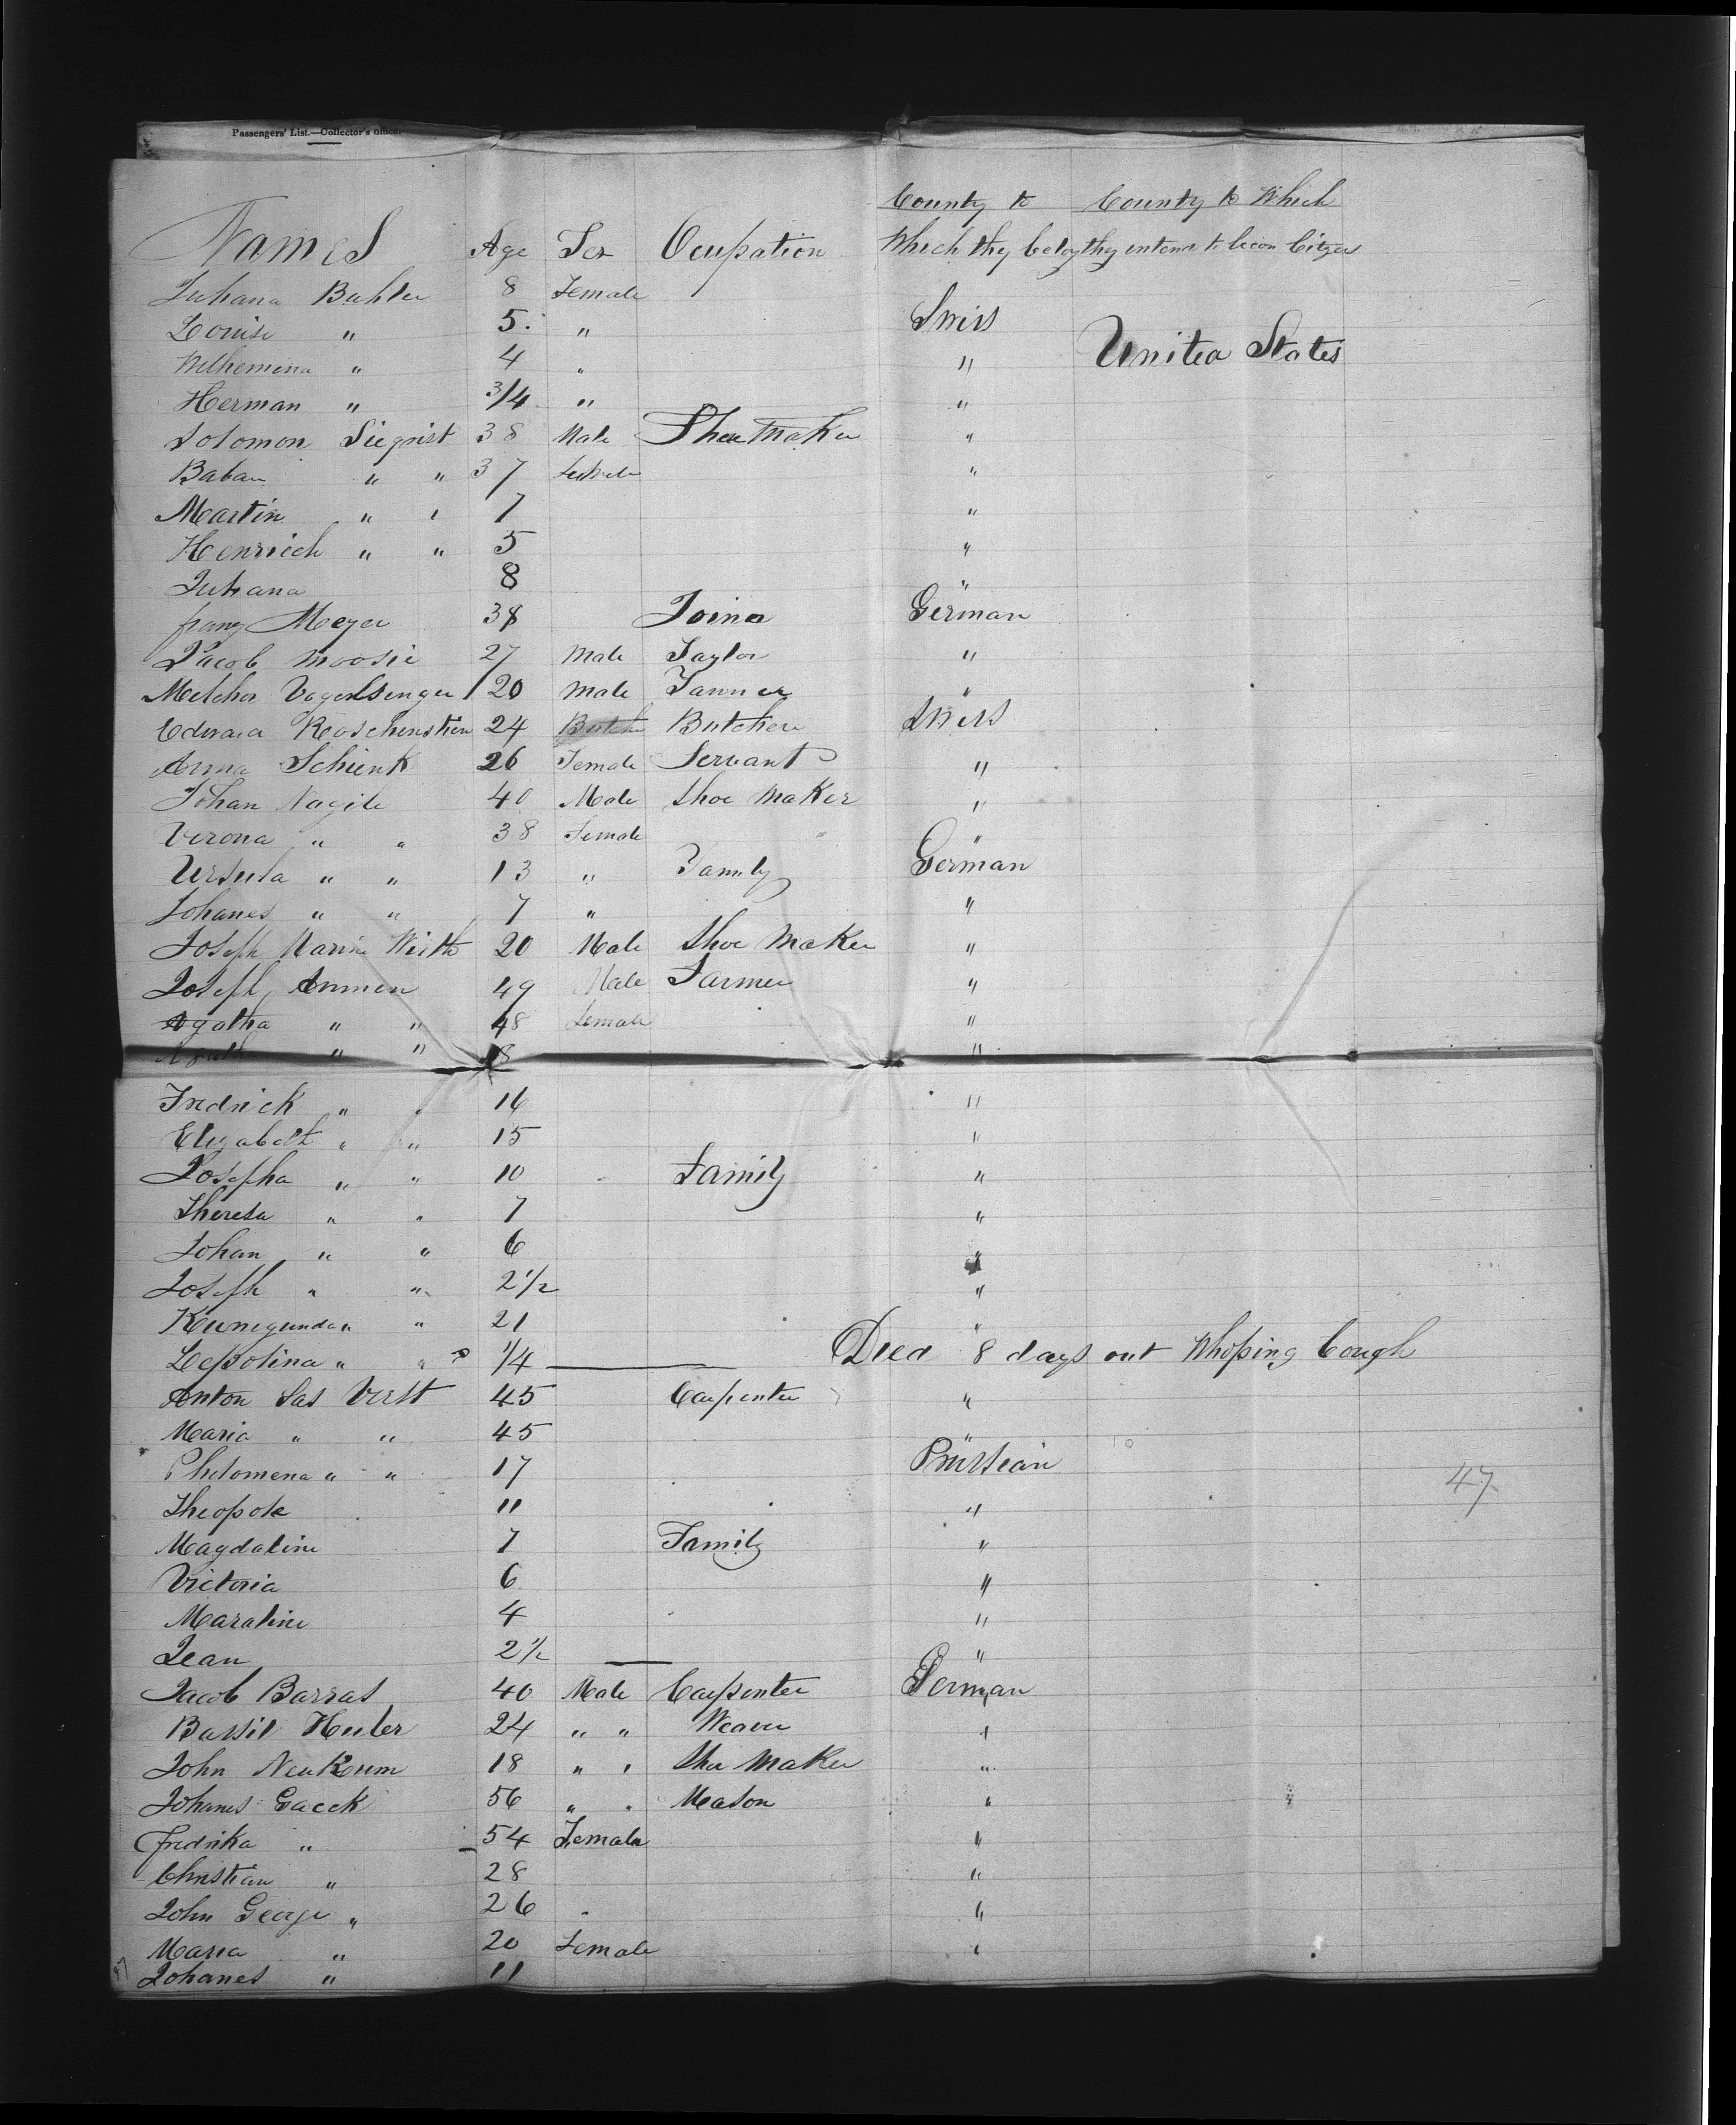 Passengers' List.—Collector's Office.
County to County to Which
Names Age Sex Ocupation Which they belog they intend to becom Citzen
Juhana Buhler 8 Female
Louise " 5. " Swiss
Wilhemena " 4 " " United States
Herman " 3/4 " "
Solomon Siegrist 38 Male Shoe Maker "
Baban " " 37 Female "
Martin " " 7 "
Henriech " " 5 "
Juhana 8 "
franz Meyer 38 Joiner German
Jacob Moosie 27 Male Taylor "
Melchor Vogelsenger 20 Male Tanner "
Edward Raschenstien 24 Butcher Butcher Swiss
Anna Schienk 26 Female Servant "
Johan Nagile 40 Male Shoe Maker "
Verona " " 38 Female "
Ursula " " 13 " Family German
Johanes " " 7 " "
Joseph Marine Wirth 20 Male Shoe Maker "
Joseph Ammen 49 Male Farmer "
Agatha " " 48 Female "
" " 8 "
Fredrick " " 16 "
Elizabeth " " 15 "
Josepha " " 10 Family "
Theresa " " 7 "
Johan " " 6 "
Joseph " " 2 1/2 "
Kunegunda " " 21 "
Lepolina " " 1/4 Died 8 days out Whoping Cough
Anton Sas Virst 45 Carpenter "
Maria " " 45 "
Philomena " " 17 Prussian
Theopole 11 " 47
Magdaline 7 Family "
Victoria 6 "
Maraline 4 "
Jean 2 1/2 "
Jacob Barras 40 Male Carpenter German
Bassil Huber 24 " " Weaver "
John Neukum 18 " " Shoe Maker "
Johanes Gacek 56 " " Mason "
Fredrika " 54 Female "
Christian " 28 "
John George " 26 "
Maria " 20 Female "
Johanes " 11